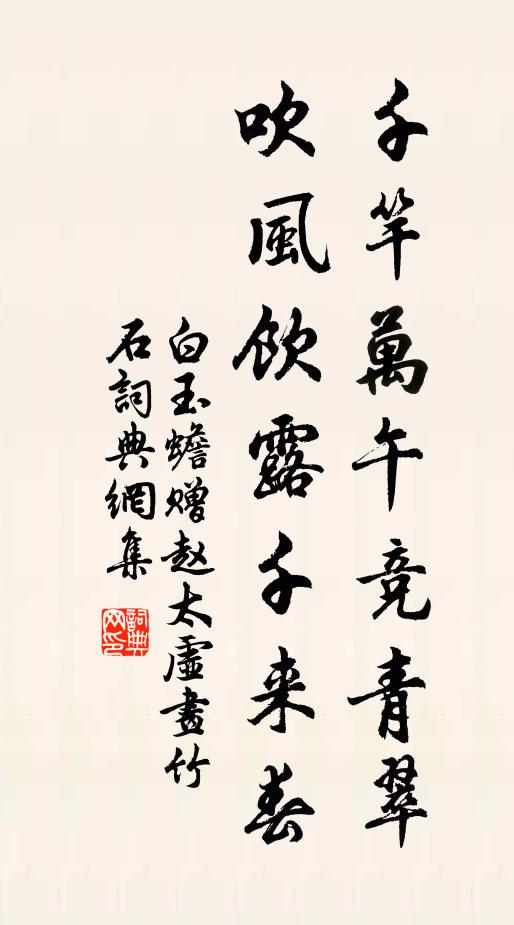 千竿萬午竞青翠
吹風飲露千来春
白玉蟾赠赵太虛畫竹
石詞典網集
詞典
网印